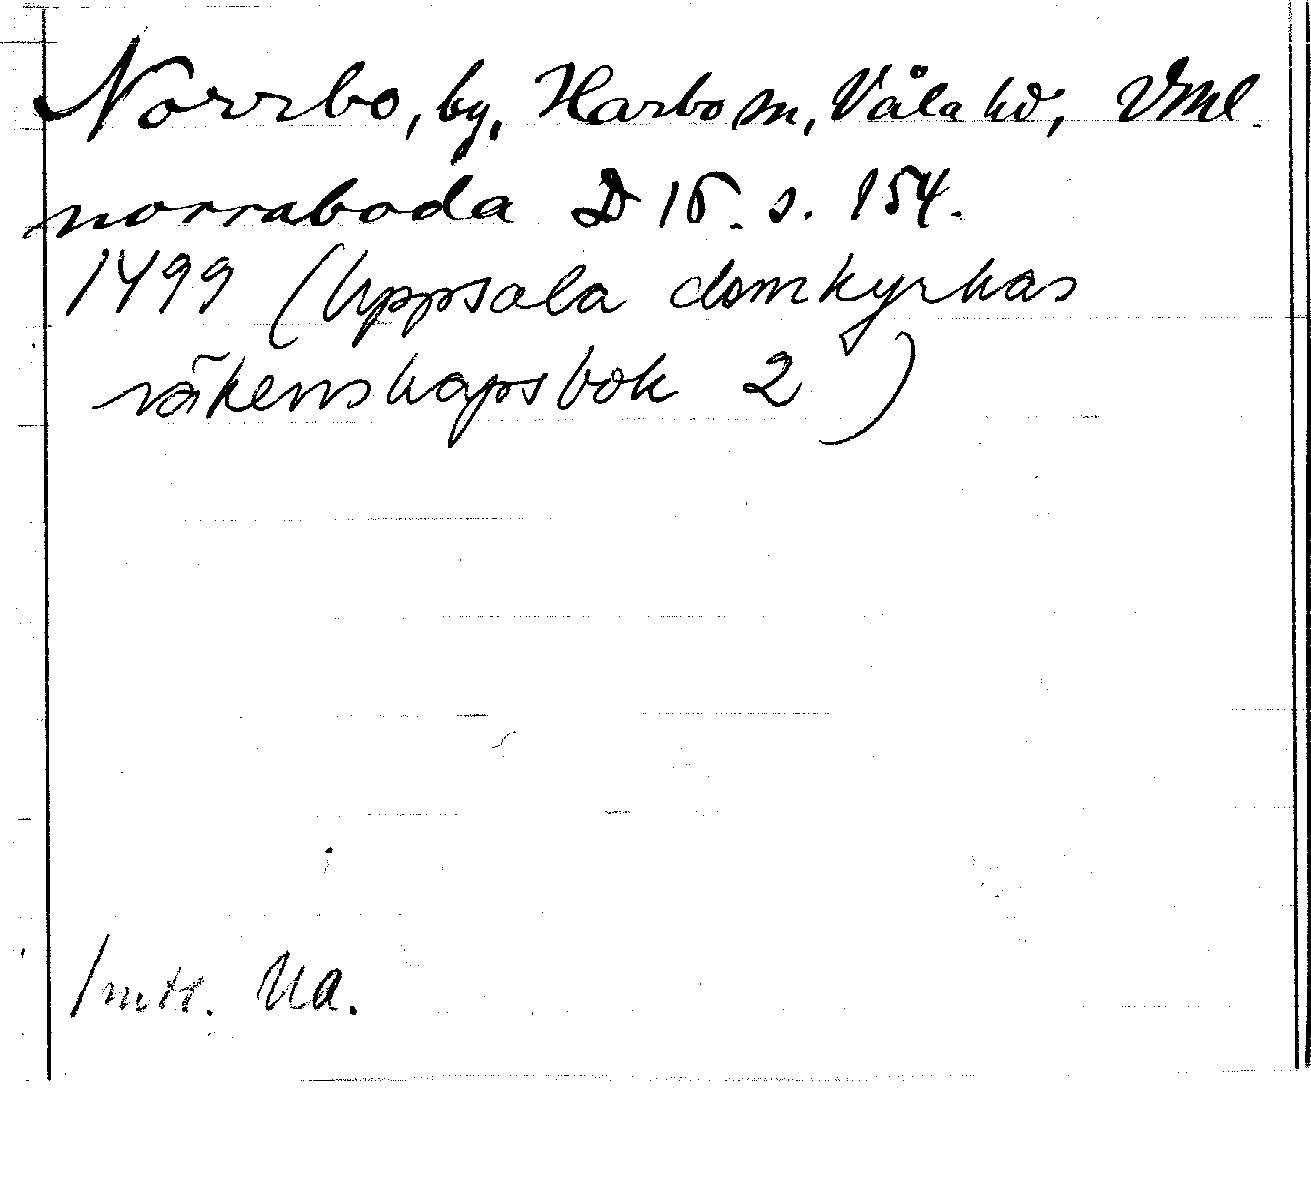 Norrbo, by, Harbo sn, Våla hd, Vml.
norraboda D 15. s. 154.
1499 (Uppsala domkyrkas
räkenskapsbok 2)
Ua.